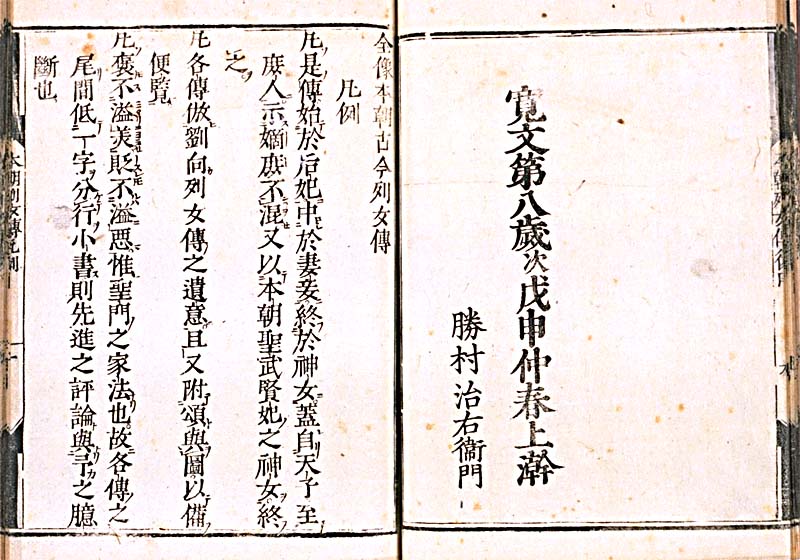 寛文第八歳次戊申仲春上澣
勝村治右衞門
全像本朝古今列女傳
凡例
凡是傳始於后妃中於妻妾終於神女蓋自天子至
庶人示嫡庶不混又以本朝聖武賢妣之神女終
之
凡各傳倣劉向列女傳之遺意且又附頌與圖以備
便覽
凡褒不溢美貶不溢惡惟聖門之家法也故各傳之
尾間低一字分行小書則先進之評論與予之臆
斷也
本朝列女傳凡例